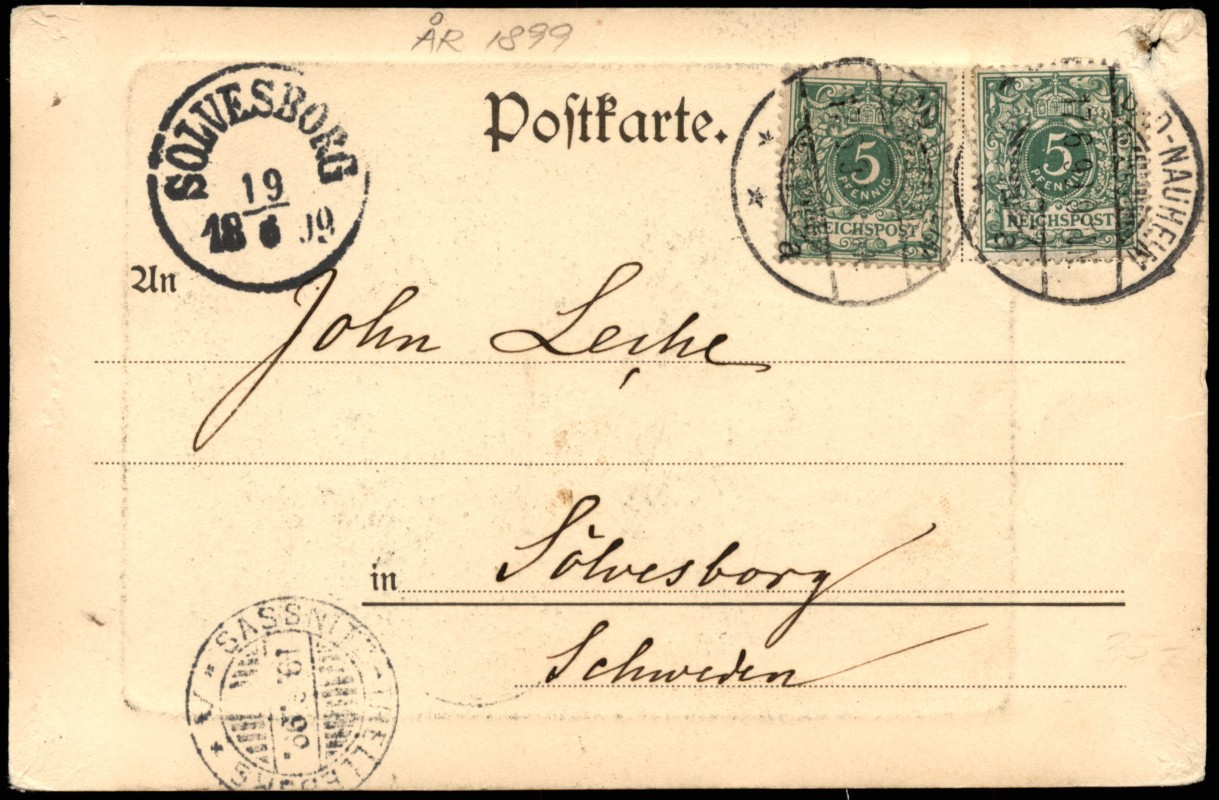 ÅR 1899
SÖLVESBORG
19
18 6 99
Postkarte.
5
PFENNIG
REICHSPOST
5
PFENNIG
REICHSPOST
BAD-NAUHEIM
17.6.99
a
a
An
John Leche
in
Sölvesborg
Schweden
SASSNITZ-TRELLEBORG
19.6.99.